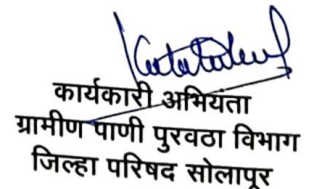 कार्यकारी अभियता
ग्रामीण पाणी पुरवठा विभाग
जिल्हा परिषद सोलापूर